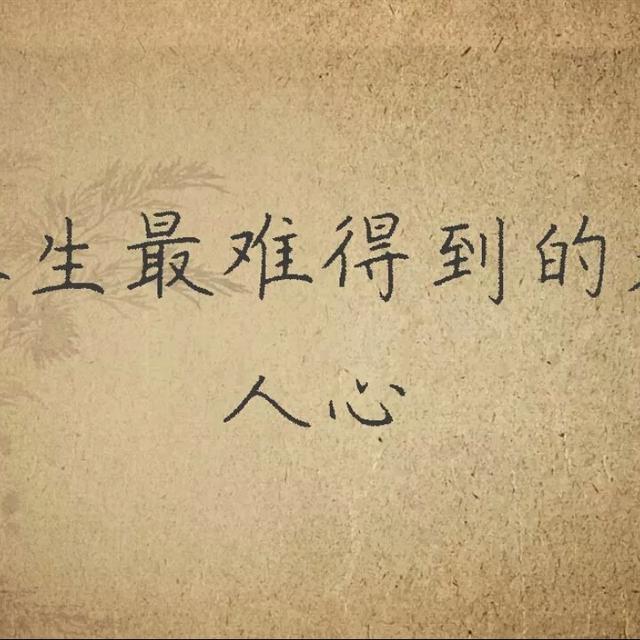 生最难得到的
人心